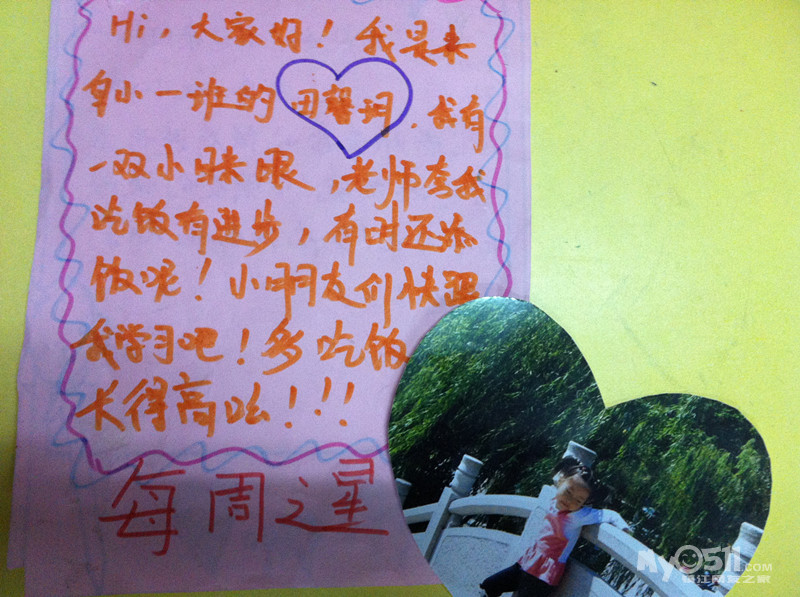 Hi，大家好！我是来
自小一班的田馨润．我有
一双小眯眼，老师夸我
吃饭有进步，有时还添
饭呢！小朋友们快跟
我学习吧！多吃饭
长得高么！！！
每周之星
My0511.COM
镇江网友之家